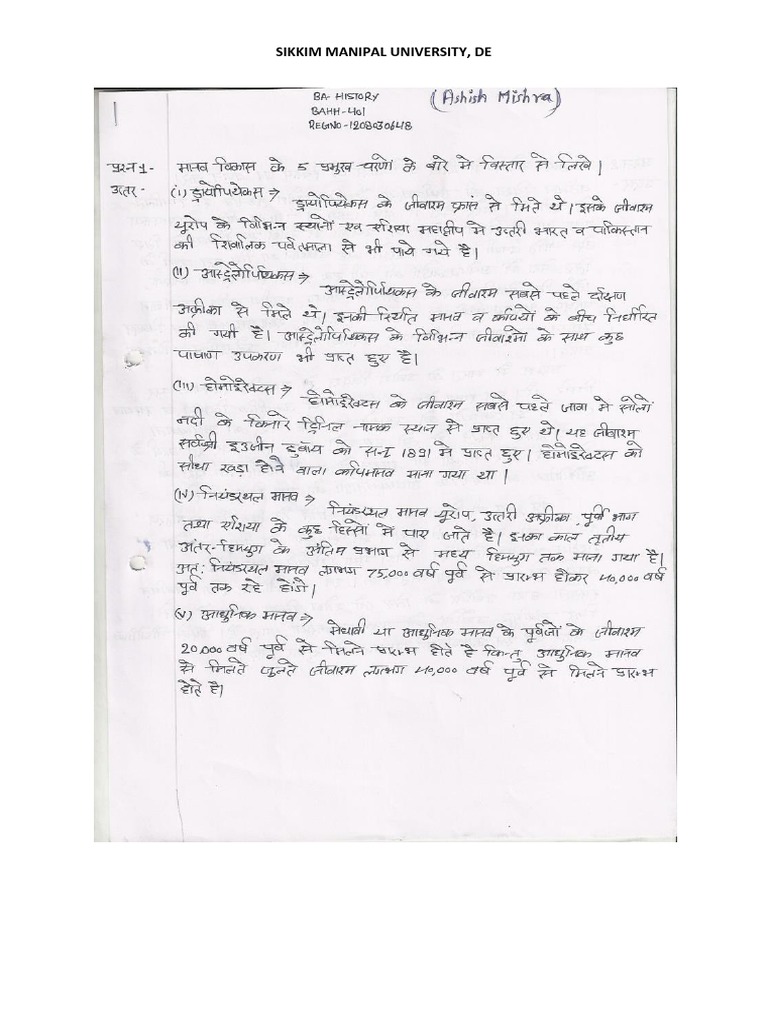 SIKKIM MANIPAL UNIVERSITY, DE
BA- HISTORY
(Ashish Mishra)
BAHH-401
REGNO-1208030648
1
प्रश्न 1- मानव विकास के 5 प्रमुख चरणों के बारे मे विस्तार से लिखे।
उत्तर - (i) ड्रायोपिथेकस ⇒
ड्रायोपिथेकस के जीवाश्म फ्रांस से मिले थे। इसके जीवाश्म
यूरोप के विभिन्न स्थानों एव एशिया महाद्वीप मे उत्तरी भारत व पाकिस्तान
की शिवालिक पर्वतमाला से भी पाये गये है।
(ii) आस्ट्रेलोपिथिकस ⇒
आस्ट्रेलोपिथिकस के जीवाश्म सबसे पहले दक्षिण
अफ्रीका से मिले थे। इनकी स्थिति मानव व कपियों के बीच निर्धारित
की गयी है। आस्ट्रेलोपिथिकस के विभिन्न जीवाश्मो के साथ कुछ
पाषाण उपकरण भी प्राप्त हुए है।
(iii) होमोइरेक्टस ⇒
होमोइरेक्टस के जीवाश्म सबसे पहले जावा मे सोलों
नदी के किनारे ट्रिनिल नामक स्थान से प्राप्त हुए थे। यह जीवाश्म
सर्वश्री इउजीन डुबॉय को सन् 1891 मे प्राप्त हुए। होमोइरेक्टस को
सीधा खड़ा होने वाला कपिमानव माना गया था।
(iv) नियंडरथल मानव ⇒
नियंडरथल मानव यूरोप, उत्तरी अफ्रीका, पूर्वी भाग
तथा एशिया के कुछ हिस्सों मे पाए जाते है। इनका काल तृतीय
अंतर-हिमयुग के अंतिम प्रभाग से मध्य हिमयुग तक माना गया है।
अत: नियंडरथल मानव लगभग 75,000 वर्ष पूर्व से प्रारम्भ होकर 40,000 वर्ष
पूर्व तक रहे होगे।
(v) आधुनिक मानव ⇒
मेधावी या आधुनिक मानव के पूर्वजों के जीवाश्म
20,000 वर्ष पूर्व से मिलने प्रारम्भ होते है किन्तु आधुनिक मानव
से मिलते जुलते जीवाश्म लगभग 40,000 वर्ष पूर्व से मिलने प्रारम्भ
होते है।